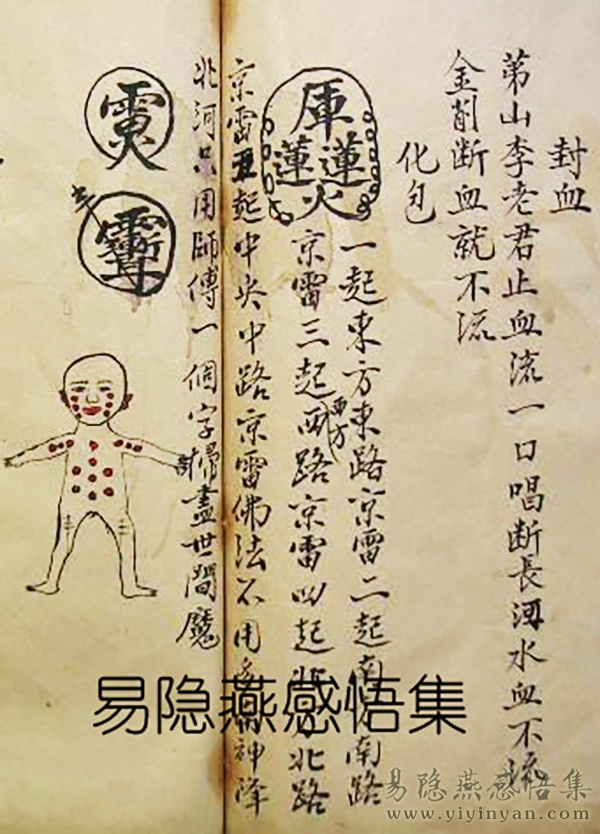 封血
苐山李老君止血流一口唱断長河水血不流
金削断血就不流
化包
庫
蓮蓮
火
一起東方東路京雷二起南方南路
京雷三起西方西路京雷四起北方北路
京雷五起中央中路京雷佛法不用多神降
北河只用師傅一個字掃盡世間魔
易隐燕感悟集
易隐燕感悟集
www.yiyinyan.com